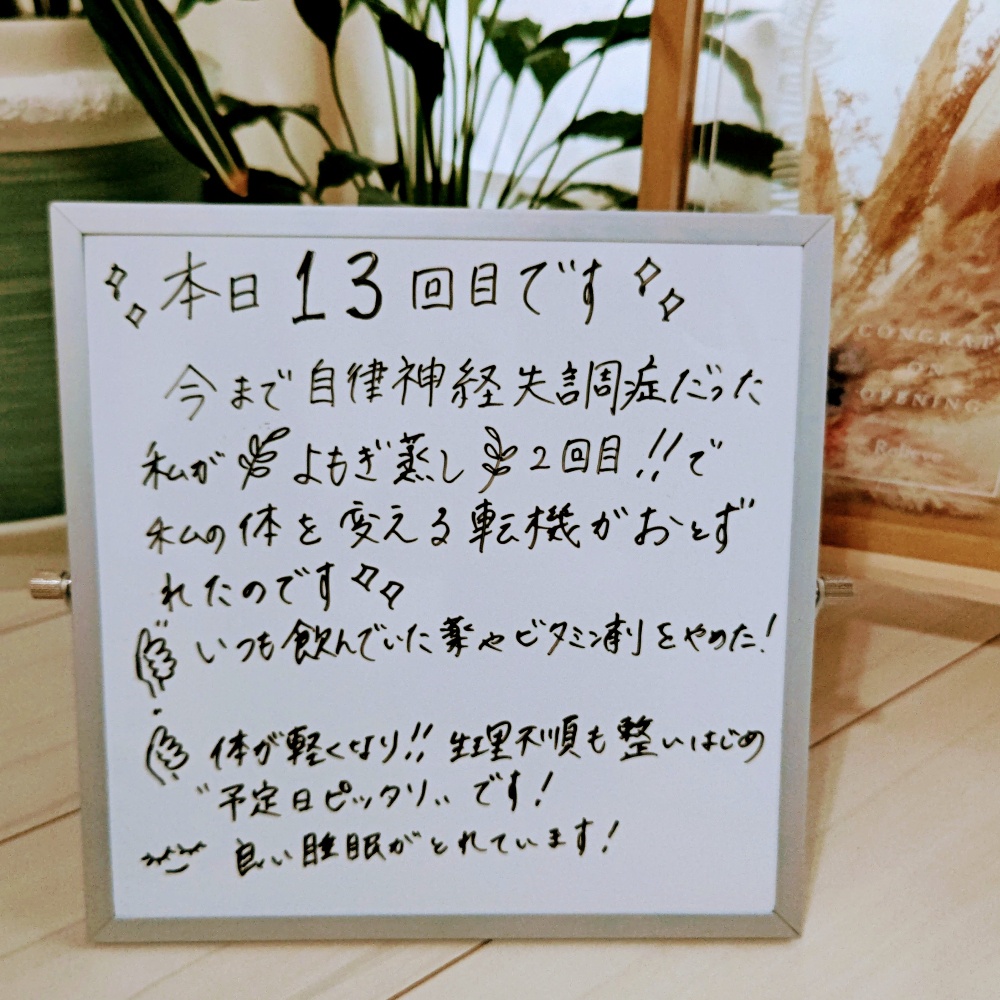 本日13回目です
今まで自律神経失調症だった
私がよもぎ蒸し2回目!!で
私の体を変える転機がおとず
れたのです
いつも飲んでいた薬やビタミン剤をやめた!
体が軽くなり!!生理不順も整いはじめ
"予定日ピッタリ"です!
良い睡眠がとれています!
CONGRAT
ON
OPENING
Relieve